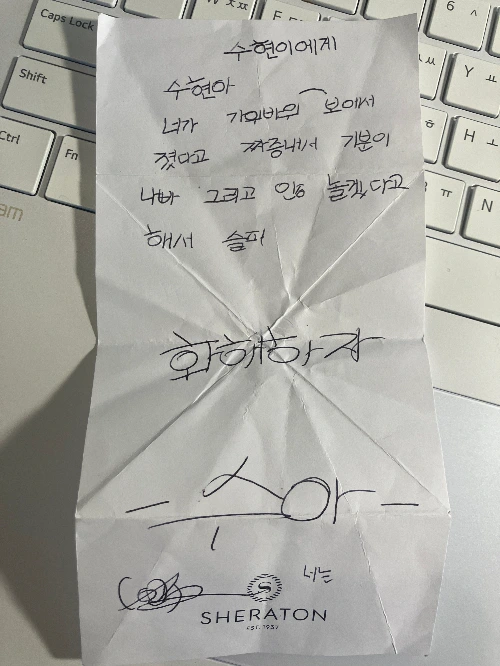 Caps Lock
Shift
Ctrl
Fn
W
E
6 ^
Y ㅛ
H ㅗ
ㅠ N
수현이에게
수현아
너가 가위바위보에서
졌다고 짜증내서 기분이
나빠 그리고 않 놀겠다고
해서 슬퍼
화해하자
- 수아 -
너는
S
SHERATON
EST. 1937